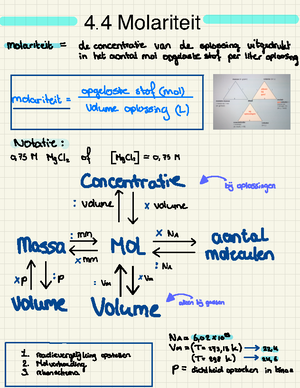 4.4 Molariteit
molariteit = de concentratie van de oplossing uitgedrukt
in het aantal mol opgeloste stof per liter oplossing
molariteit = opgeloste stof (mol)
Volume oplossing (L)
Notatie:
0,75 M MgCl₂ of [MgCl₂] = 0,75 M
Concentratie
bij oplossingen
: volume
x volume
Massa
: mm
x mm
MOL
x NA
: NA
aantal
moleculen
x ρ
: ρ
: Vm
x Vm
Volume
Volume
alleen bij gassen
NA = 6,02 x 10²³
Vm = (T = 273,15 K) → 22,4
(T = 298 K) → 24,5
ρ = dichtheid opzoeken in binas
1. Reactievergelijking opstellen
2. Molverhouding
3. Rekenschema